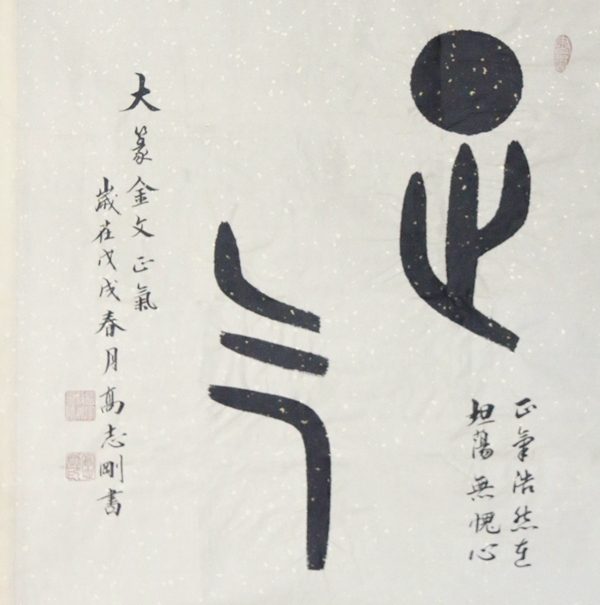 正气
正氣浩然在
坦蕩無愧心
大篆金文正氣
歲在戊戌春月高志剛書